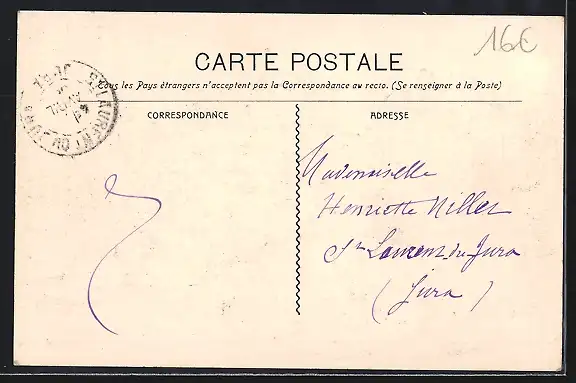 16€
CARTE POSTALE
Tous les Pays étrangers n'acceptent pas la Correspondance au recto. (Se renseigner à la Poste)
CORRESPONDANCE
ADRESSE
Mademoiselle
Henriette
St Laurent-du-Jura
(Jura)
ST LAURENT DU JURA